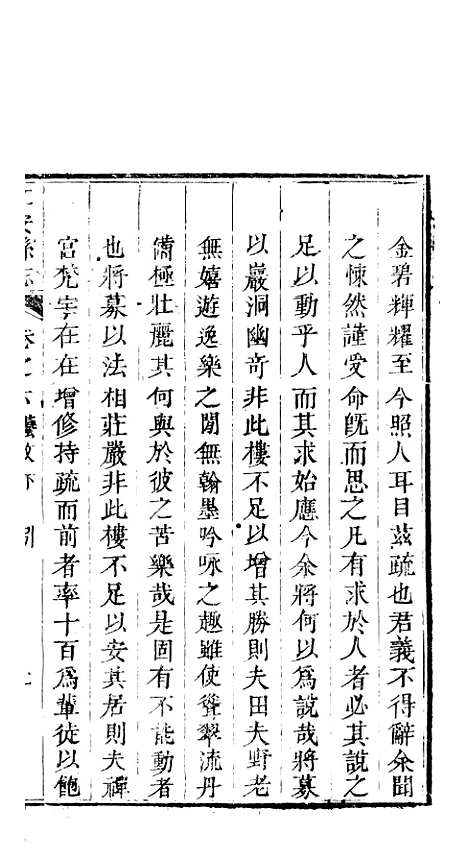 金碧輝耀至今照人耳目茲疏也君義不得辭余聞
之悚然謹受命旣而思之凡有求於人者必其說之
足以動乎人而其求始應今余將何以爲說哉將募
以巖洞幽奇非此樓不足以增其勝則夫田夫野老
無嬉遊逸樂之閒無翰墨吟咏之趣雖使聳翠流丹
備極壯麗其何與於彼之苦樂哉是固有不能動者
也將募以法相莊嚴非此樓不足以安其居則夫禪
宮梵宇在在增修持疏而前者率十百爲輩徒以飽
縣志 卷之 藝 引